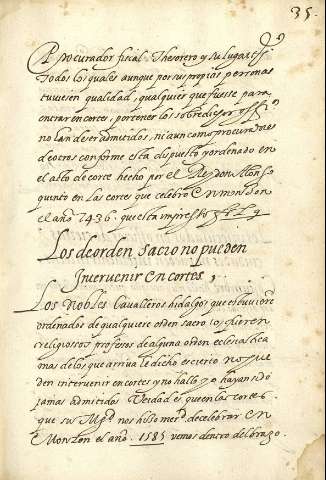 35.
Procurador fiscal. Thesorero y su lugar
Todos los quales aunque por sus propias personas
tuviesen qualidad, qualquier que fuesse para
entrar en cortes, por tener los sobredichos
no han de ser admitidos, ni aun como procuradores
de otros conforme esta dispuesto y ordenado en
el acto de corte hecho por el Rey don Alonso
quinto en las cortes que celebro En monson
el año 1436. que esta impresso
Los de orden sacro no pueden
Intervenir en cortes,
Los Nobles Cavalleros hidalgos que estuvieren
ordenados de qualquiere orden sacro lo fueren
religiosos profesos de alguna orden eclesiastica
mas de los que arriva he dicho escierto no pue
den intervenir en cortes y no hallo que hayan sido
jamas admitidos Verdad es que en las cortes
que su Mgd. nos hiso merd. de celebrar en
Monson el año. 1585 vemos dentro del braço.